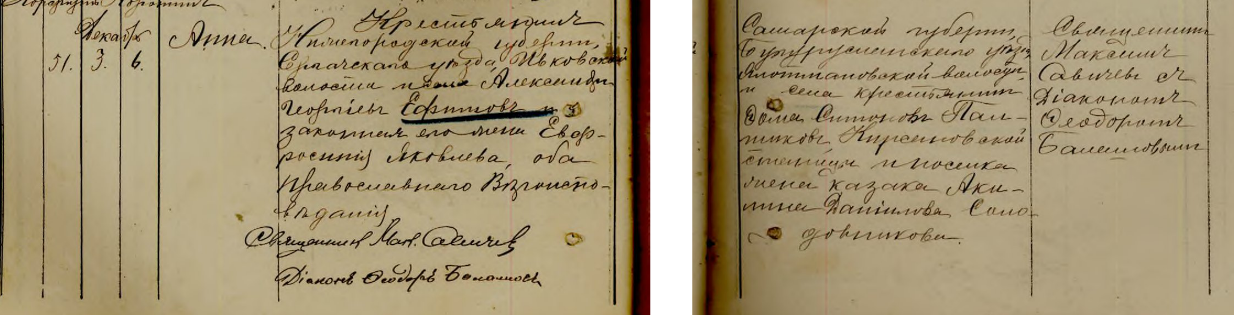 Декабрь
51. 3. 6.
Анна.
Крестьянинъ
Нижегородской губерніи,
уѣзда Ивковской
волости и села Александръ
Георгіевъ Ефимовъ и
законная его жена Евф-
росинія Яковлева, оба
православнаго Вѣроиспо-
вѣданія
Священникъ Мак. Савичев
Діаконъ Ѳеодоръ
Самарской губерніи,
Бугурусланскаго уѣзда,
волости
и села крестьянинъ
Ѳома Симоновъ Пал-
никовъ Кирсановской
станицы и поселка
жена казака Аки-
лина Даніилова Соло-
довникова.
Священникъ
Максимъ
Савичевъ съ
Діакономъ
Ѳеодоромъ